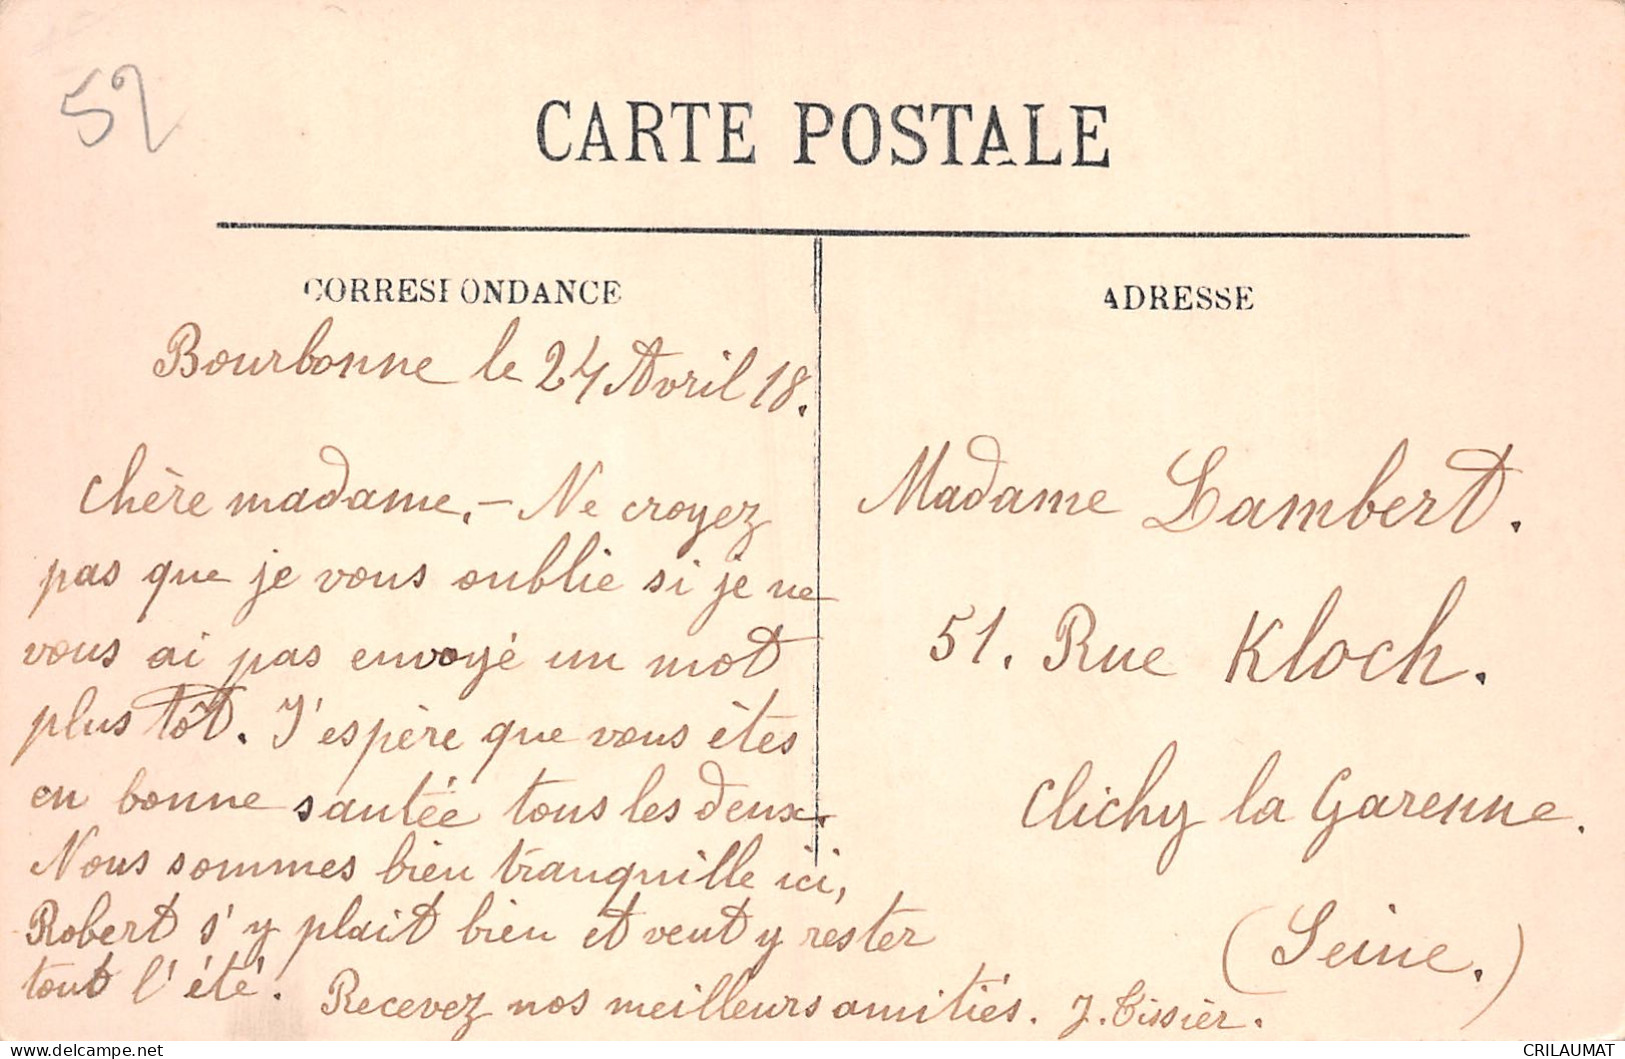 52
CARTE POSTALE
CORRESPONDANCE
Bourbonne le 24 Avril 18.
chère madame. - Ne croyez
pas que je vous oublie si je ne
vous ai pas envoyé un mot
plus tôt. J'espère que vous êtes
en bonne santée tous les deux.
Nous sommes bien tranquille ici,
Robert s'y plait bien et veut y rester
tout l'été. Recevez nos meilleurs amitiés. J. Tissier.
ADRESSE
Madame Lambert.
51. Rue Kloch.
Clichy la Garenne.
(Seine.)
CRILAUMAT